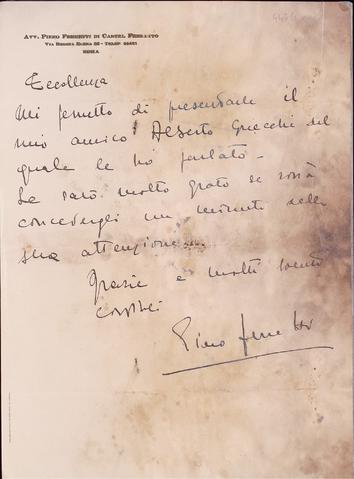 AVV. PIERO FERRETTI DI CASTEL FERRATTO
VIA REGINA ELENA
ROMA
Eccellenza
Mi permetto di presentarle il
mio amico Alberto Grecchi del
quale le ho parlato -
Le sarò molto grato se vorrà
concedergli un minuto della
sua attenzione
Grazie e molti
cordiali
Piero Ferretti